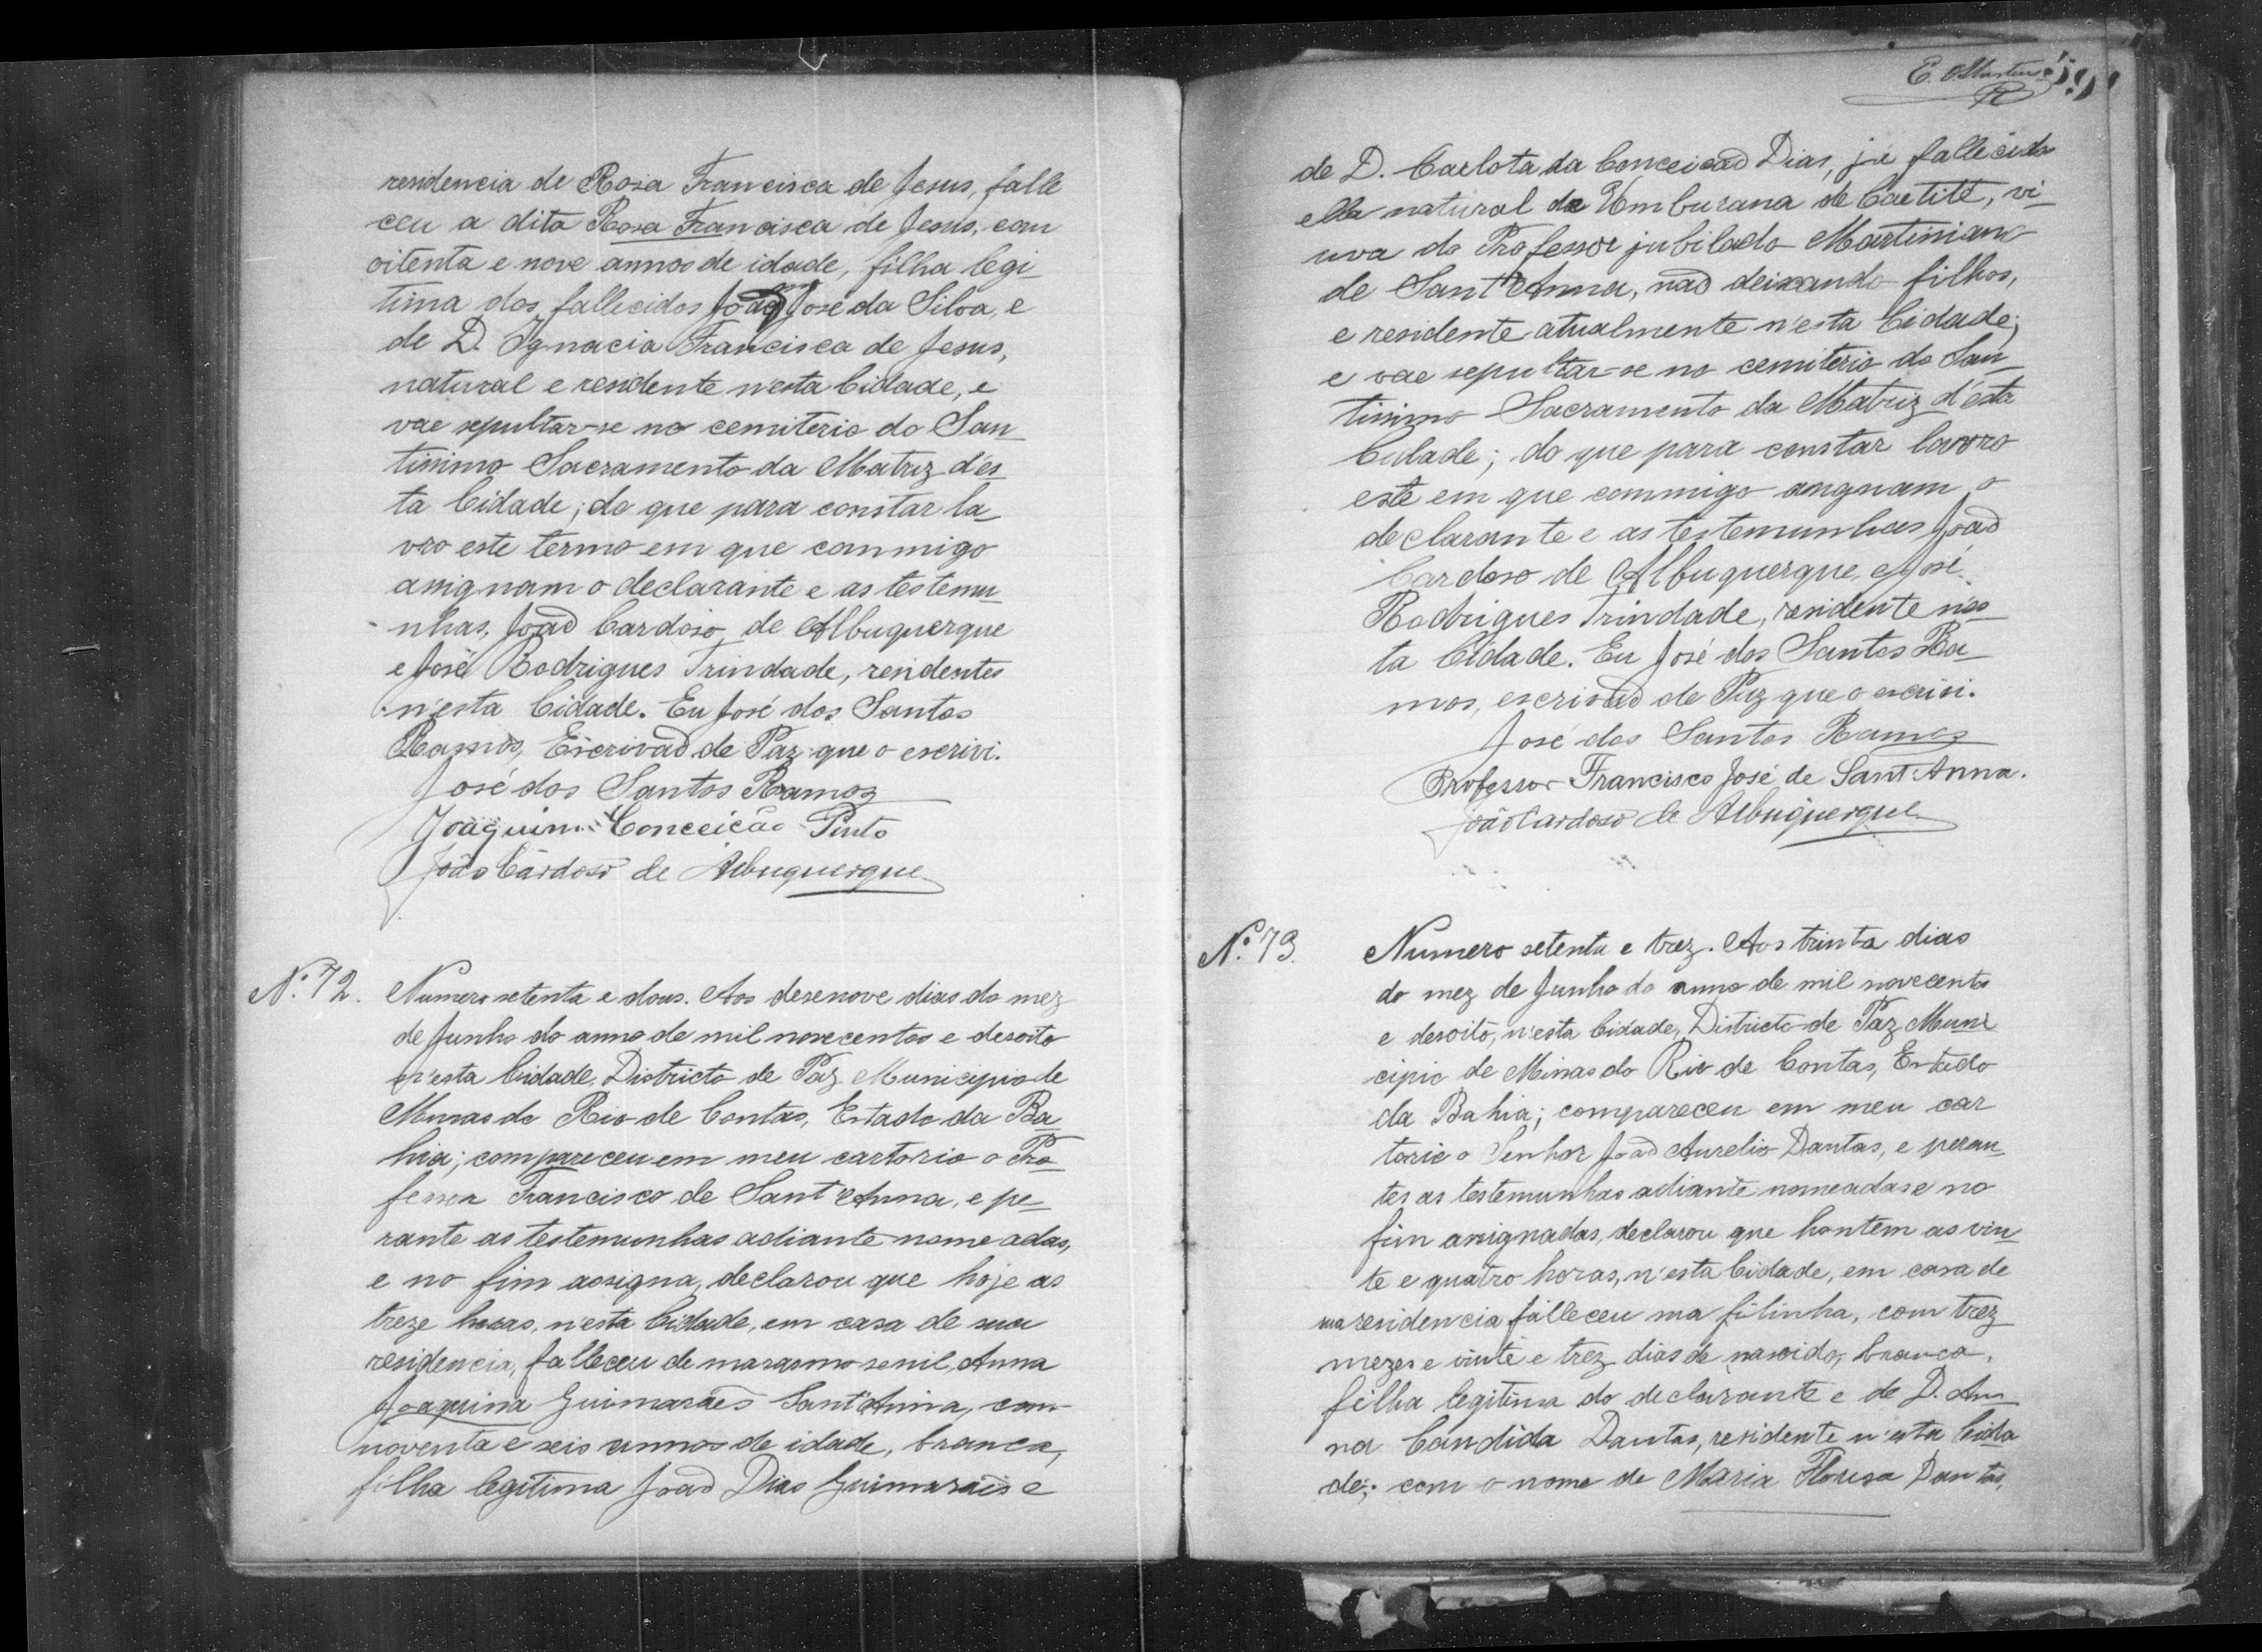 residencia de Rosa Francisca de Jesus, falle
ceu a dita Rosa Francisca de Jesus, com
oitenta e nove annos de idade, filha legi_
tima dos fallecidos João José da Silva, e
de D. Ignacia Francisca de Jesus,
natural e residente n'esta Cidade, e
vae sepultar-se no cemiterio do San_
tissimo Sacramento da Matriz d'es_
ta Cidade; do que para constar la_
vro este termo em que commigo
assignam o declarante e as testemu_
nhas, João Cardoso de Albuquerque
e José Rodrigues Trindade, residentes
n'esta Cidade. Eu José dos Santos
Ramos, Escrivão de Paz que o escrivi.
José dos Santos Ramos
Joaquim Conceição Pinto
João Cardoso de Albuquerque
Nº 72. Numero setenta e dous. Aos desenove dias do mez
de Junho do anno de mil novecentos e desoito
n'esta Cidade, Districto de Paz Municipio de
Minas do Rio de Contas, Estado da Ba_
hia; compareceu em meu cartorio o Pro_
fessor Francisco de Sant'Anna, e pe_
rante as testemunhas adiante nomeadas,
e no fim assigna, declarou que hoje as
treze horas, n'esta Cidade, em casa de sua
residencia, falleceu de marasmo senil, Anna
Joaquina Guimarães Sant'Anna, com
noventa e seis annos de idade, branca,
filha legitima João Dias Guimarães e
E. Martins
59
de D. Carlota da Conceicão Dias, já fallecida
ella natural da Umburana de Caetité, vi_
uva do Professor jubilado Martiniano
de Sant'Anna, não deixando filhos,
e residente atualmente n'esta Cidade;
e vae sepultar-se no cemiterio do San_
tissimo Sacramento da Matriz d'esta
Cidade; do que para constar lavro
este em que commigo assignam o
declarante e as testemunhas João
Cardoso de Albuquerque e José
Rodrigues Trindade, residente n'es_
ta Cidade. Eu José dos Santos Ra_
mos, escrivão de Paz que o escrivi.
José dos Santos Ramos
Professor Francisco José de Sant'Anna.
João Cardoso de Albuquerque
Nº 73. Numero setenta e trez. Aos trinta dias
do mez de Junho do anno de mil novecentos
e desoito, n'esta Cidade, Districto de Paz Muni
cipio de Minas do Rio de Contas, Estado
da Bahia; compareceu em meu car
torio o Senhor João Aurelio Dantas, e peran_
tes as testemunhas adiante nomeadas e no
fim assignadas, declarou que hontem as vin_
te e quatro horas, n'esta Cidade, em casa de
sua residencia falleceu ma filinha, com trez
mezes e vinte e trez dias de nascida, branca,
filha legitima do declarante e de D. An_
na Candida Dantas, residente n'esta Cida
de; com o nome de Maria Floriza Dantas,